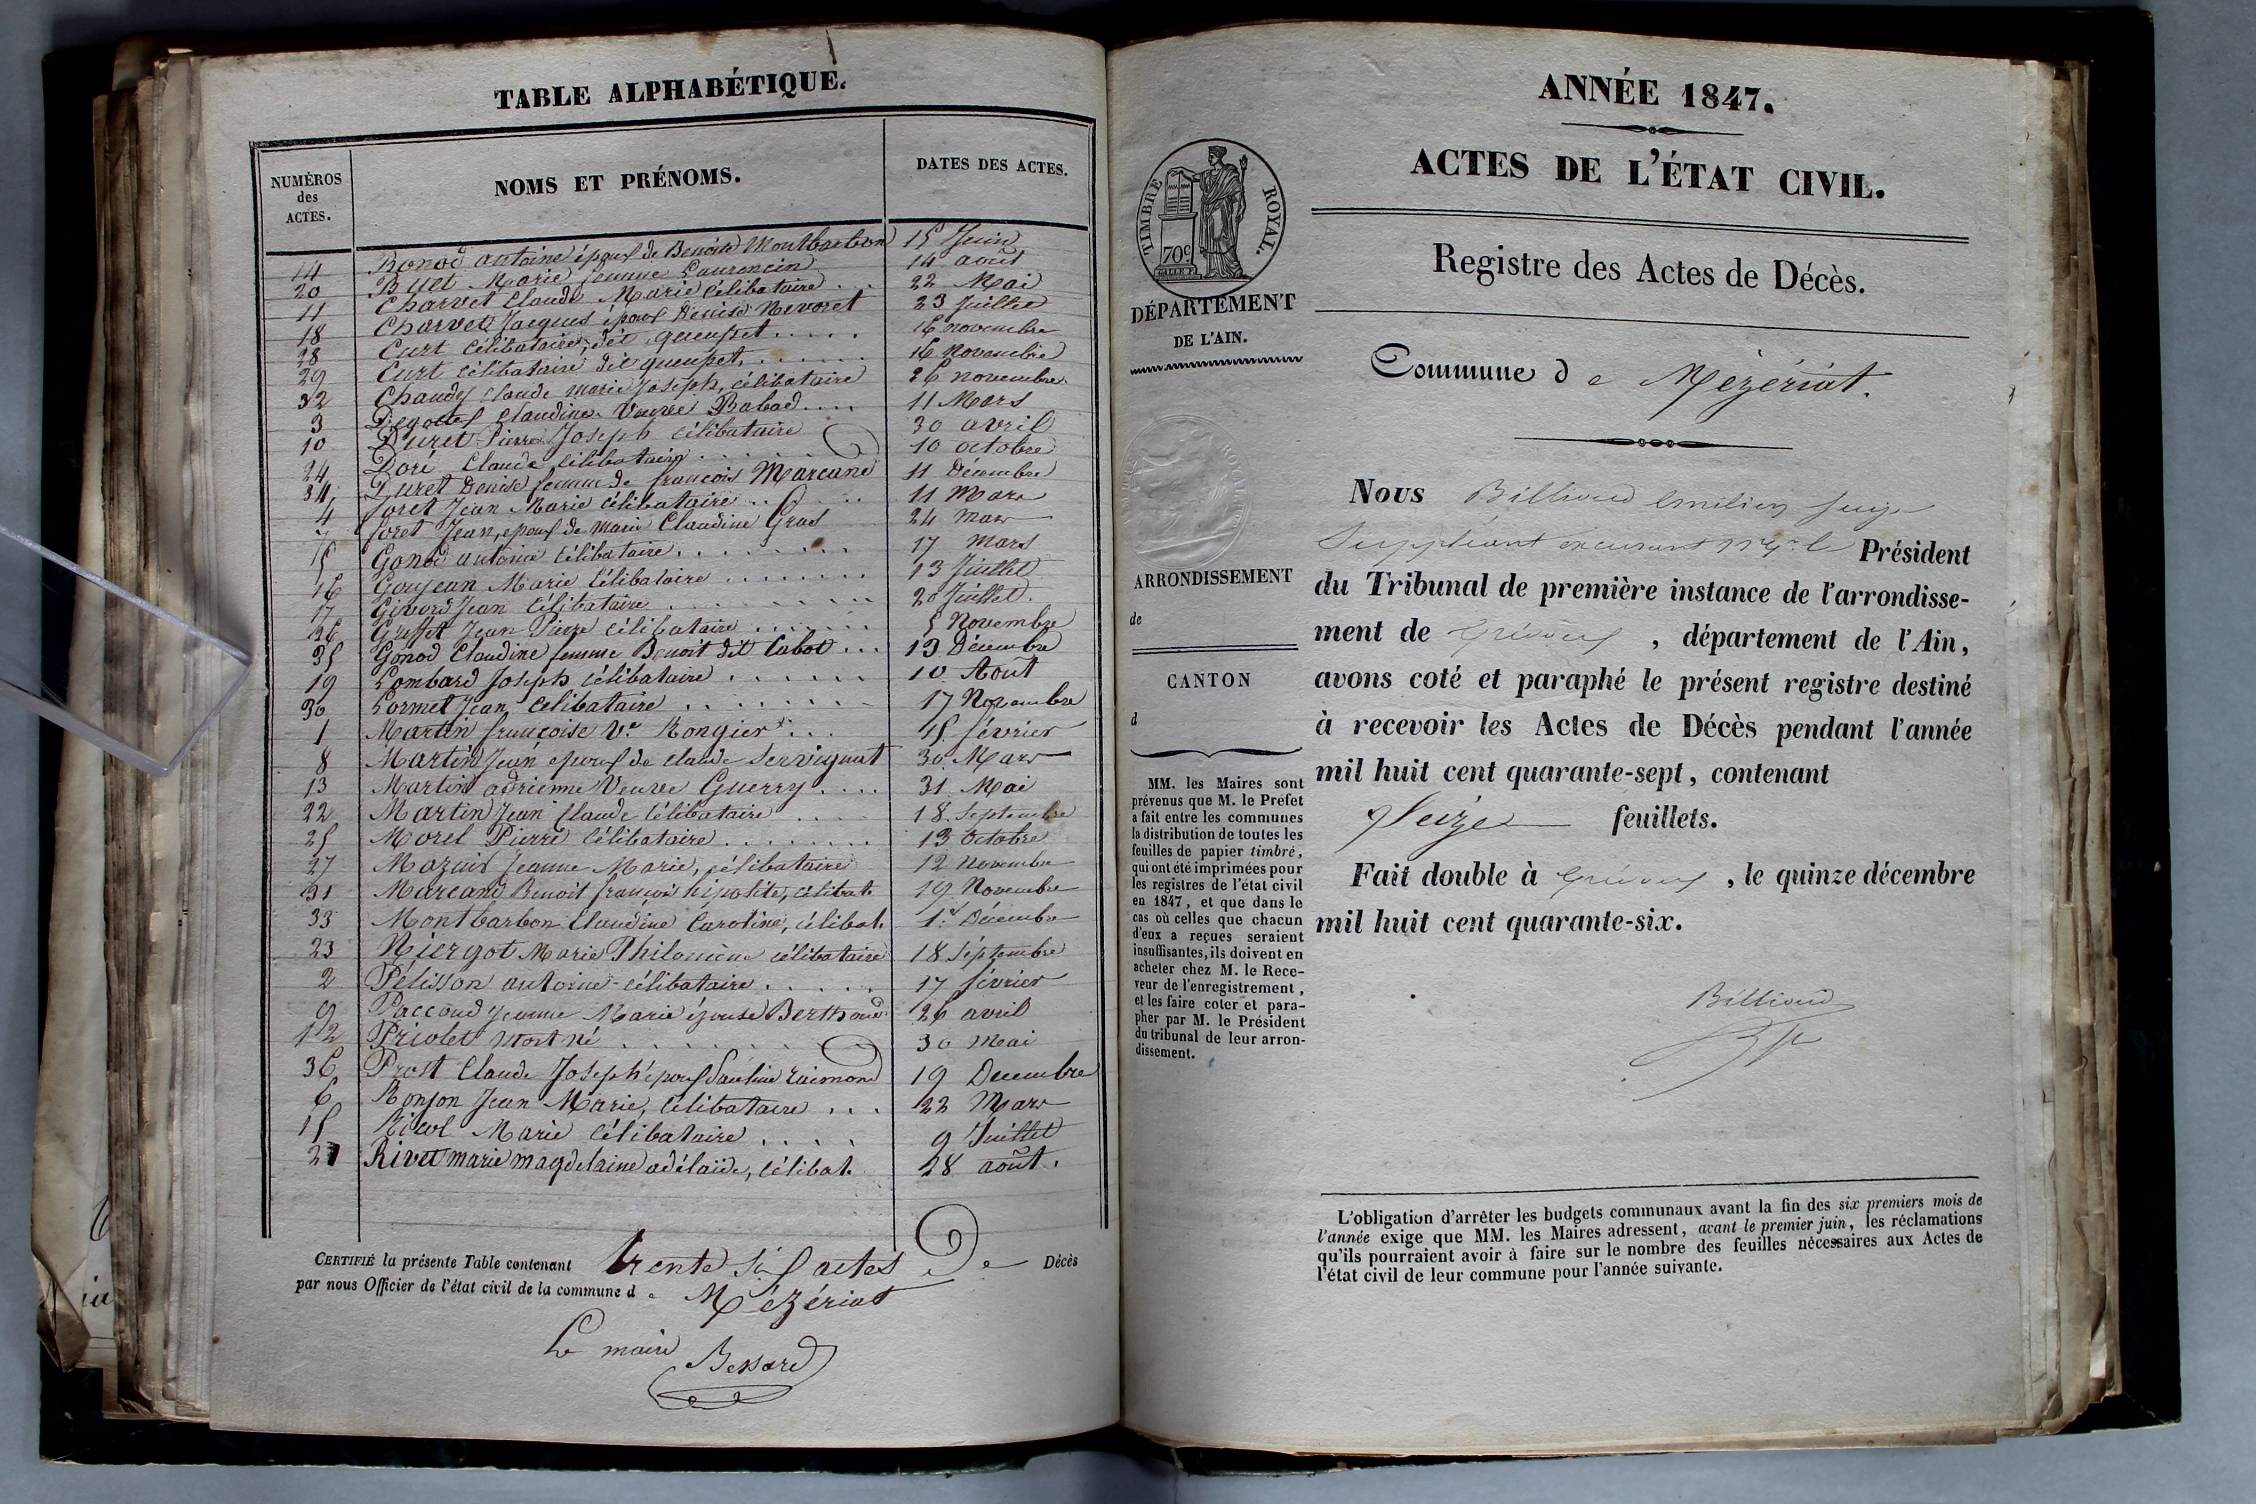 TABLE ALPHABÉTIQUE.
NUMÉROS
des
ACTES.
NOMS ET PRÉNOMS.
DATES DES ACTES.
14 Bonod antoine époux de Benoite Montbarbon 15 Juin
20 Buet Marie femme Laurencin 14 août
11 Charvet Claude Marie célibataire . . 22 Mai
18 Charvet Jacques époux Denise Nevoret 23 Juillet
28 Curt célibataire, dit queupet . . . . . 16 novembre
29 Curt célibataire dit queupet. . . . . . . 16 Novembre
32 Chaudy Claude marie Joseph, célibataire 26 novembre
3 Degottex Claudine Veuve Babad . . . . 11 Mars
10 Duret Pierre Joseph célibataire 30 avril
24 Doré Claude célibataire . . . . . . 10 octobre
34 Duret Denise femme de françois Marcand 11 Décembre
4 foret Jean Marie célibataire . . . . 11 Mars
7 foret Jean, époux de marie Claudine Gras 24 mars
5 Gonod antoine célibataire . . . . . . . . 17 Mars
16 Goyjean Marie célibataire . . . . . . . . 13 Juillet
17 Givord Jean célibataire . . . . . . . . 20 Juillet.
26 Griffet Jean Pierre célibataire . . . . . . 5 Novembre
35 Gonod Claudine femme Benoit dit Cabot . . . 13 Décembre
19 Lombard Joseph célibataire . . . . . . 10 Août
30 Lormet Jean célibataire . . . . . . . . 17 Novembre
1 Martin françoise Ve Rongier . . . 15 février
8 Martin Jean époux de claude Servignat 30 Mars
13 Martin adrienne Veuve Guerry . . . . 31 Mai
22 Martin Jean Claude célibataire . . . . 18 Septembre
25 Morel Pierre célibataire . . . . . . . . 13 Octobre
27 Mazuir Jeanne Marie, célibataire 12 novembre
31 Marcand Benoit françois hipolite, célibat. 19 Novembre
33 Montbarbon Claudine Caroline, célibat. 1er Décembre
23 Niergot Marie Philomène célibataire 18 Septembre
2 Pélisson antoine célibataire . . . . . 17 février
9 Paccoud Jeanne Marie épouse Berthoud 26 avril
12 Priolet mort né . . . . . . . . 30 Mai
36 Prost Claude Joseph époux Pauline Raimond 19 Decembre
6 Ronjon Jean Marie, célibataire . . . 22 Mars
15 Ricol Marie célibataire . . . . . 9 Juillet
21 Rivet marie magdelaine adélaïde, célibat. 28 août.
CERTIFIÉ la présente Table contenant trente Six actes De Décès
par nous Officier de l'état civil de la commune de Mézériat
Le maire
Bessard
ANNÉE 1847.
ACTES DE L'ÉTAT CIVIL.
TIMBRE ROYAL.
70c
DÉPARTEMENT
DE L'AIN.
Registre des Actes de Décès.
Commune de Mézériat.
ARRONDISSEMENT
de
CANTON
d
MM. les Maires sont
prévenus que M. le Préfet
a fait entre les communes
la distribution de toutes les
feuilles de papier timbré,
qui ont été imprimées pour
les registres de l'état civil
en 1847, et que dans le
cas où celles que chacun
d'eux a reçues seraient
insuffisantes, ils doivent en
acheter chez M. le Rece-
veur de l'enregistrement,
et les faire coter et para-
pher par M. le Président
du tribunal de leur arron-
dissement.
Nous Billioud Emilien Juge
Suppléant le Président
du Tribunal de première instance de l'arrondisse-
ment de Trévoux, département de l'Ain,
avons coté et paraphé le présent registre destiné
à recevoir les Actes de Décès pendant l'année
mil huit cent quarante-sept, contenant
Seize feuillets.
Fait double à Trévoux, le quinze décembre
mil huit cent quarante-six.
Billioud
L'obligation d'arrêter les budgets communaux avant la fin des six premiers mois de
l'année exige que MM. les Maires adressent, avant le premier juin, les réclamations
qu'ils pourraient avoir à faire sur le nombre des feuilles nécessaires aux Actes de
l'état civil de leur commune pour l'année suivante.